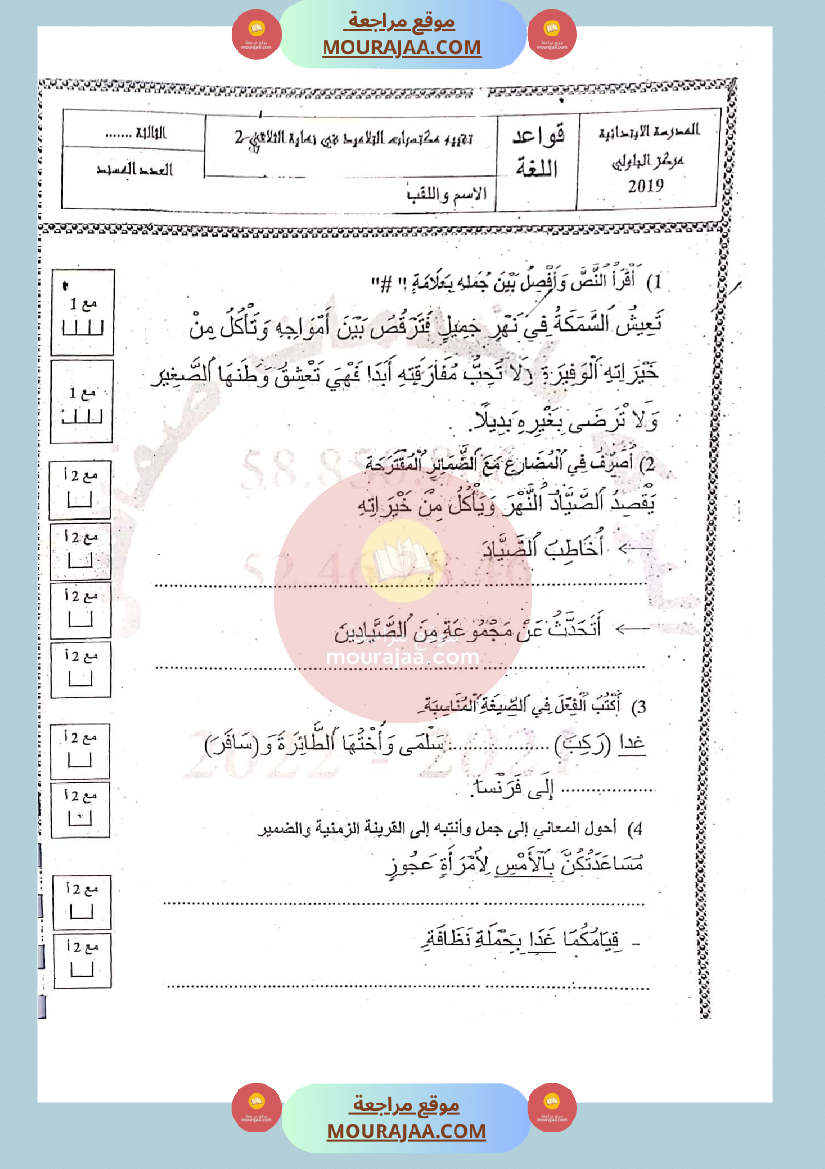 موقع مراجعة
MOURAJAA.COM
المدرسة الابتدائية
مركز الجاولي
2019
قواعد
اللغة
تقييم مكتسبات التلاميذ في نهاية الثلاثي 2
الاسم واللقب
الثالثة .......
العدد المسند
1) أَقْرَأُ النَّصَّ وَأَفْصِلُ بَيْنَ جُمَلِهِ بِعَلَامَةِ "#"
تَعِيشُ السَّمَكَةُ فِي نَهْرٍ جَمِيلٍ فَتَرْقُصُ بَيْنَ أَمْوَاجِهِ وَتَأْكُلُ مِنْ
خَيْرَاتِهِ الْوَفِيرَةِ وَلَا تُحِبُّ مُفَارَقَتِهِ أَبَدًا فَهْيَ تَعْشِقُ وَطَنَهَا الصَّغِير
وَلَا تَرْضَى بِغَيْرِهِ بَدِيلًا.
2) أُصَرِّفُ فِي الْمُضَارِعِ مَعَ الضَّمَائِرِ الْمُقْتَرَحَةِ
يَقْصِدُ الصَّيَّادُ النَّهْرَ وَيَأْكُلُ مِنْ خَيْرَاتِهِ
← أُخَاطِبُ الصَّيَّادَ
← أَتَحَدَّثُ عَنْ مَجْمُوعَةٍ مِنَ الصَّيَّادِينَ
3) أَكْتُبُ الْفِعْلَ فِي الصِّيغَةِ الْمُنَاسِبَةِ.
غدا (رَكِبَ) .................... سَلْمَى وَأُخْتُهَا الطَّائِرَةَ وَ(سَافَرَ)
.................... إِلَى فَرَنْسَا.
4) أحول المعاني إلى جمل وأنتبه إلى القرينة الزمنية والضمير
مُسَاعَدَتُكُنَّ بِالْأَمْسِ لِأمْرَأَةٍ عَجُوزٍ
- قِيَامُكُمَا غَدًا بِحَمْلَةِ نَظَافَةٍ.
مع 1
مع 1
مع 2 أ
مع 2 أ
مع 2 أ
مع 2 أ
مع 2 أ
مع 2 أ
مع 2 أ
مع 2 أ
موقع مراجعة
mourajaa.com
2022 - 2021
موقع مراجعة
MOURAJAA.COM